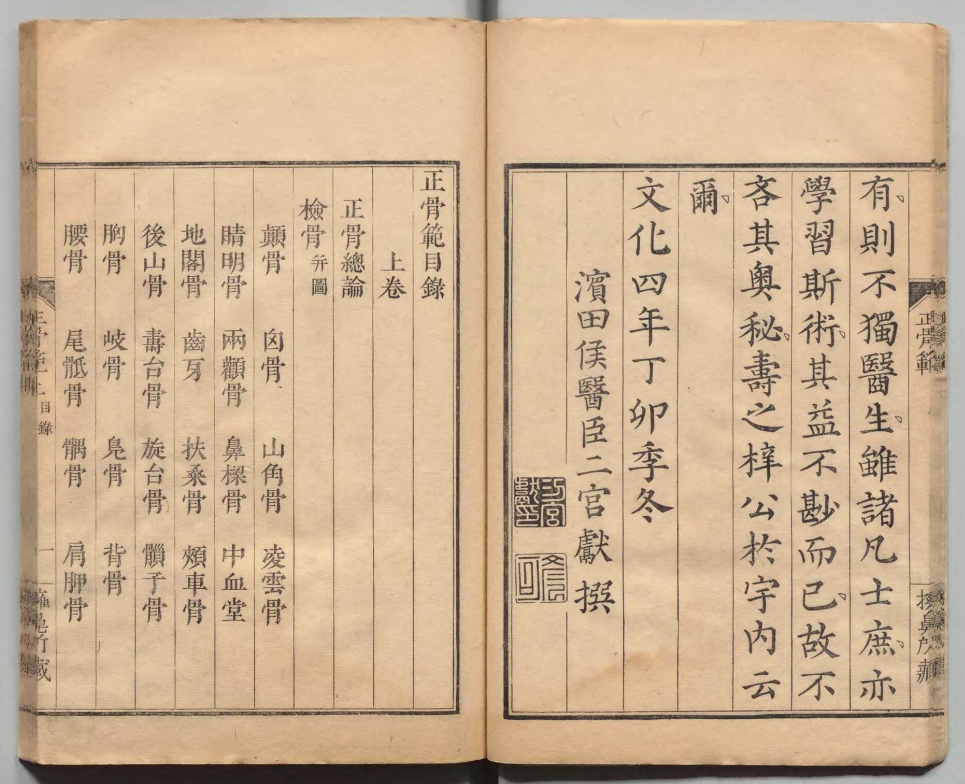 有則不獨醫生雖諸凡士庶亦
學習斯術其益不尠而已故不
吝其奧秘壽之梓公於宇內云
爾
文化四年丁卯季冬
濱田侯醫臣二宮獻撰
正骨範
正骨範目錄
上卷
正骨總論
檢骨 并圖
顛骨 囟骨 山角骨 凌雲骨
睛明骨 兩顴骨 鼻梁骨 中血堂
地閣骨 齒牙 扶桒骨 頰車骨
後山骨 壽台骨 旋台骨 顀子骨
胸骨 岐骨 鳧骨 背骨
腰骨 尾骶骨 髃骨 肩胛骨
目錄 一